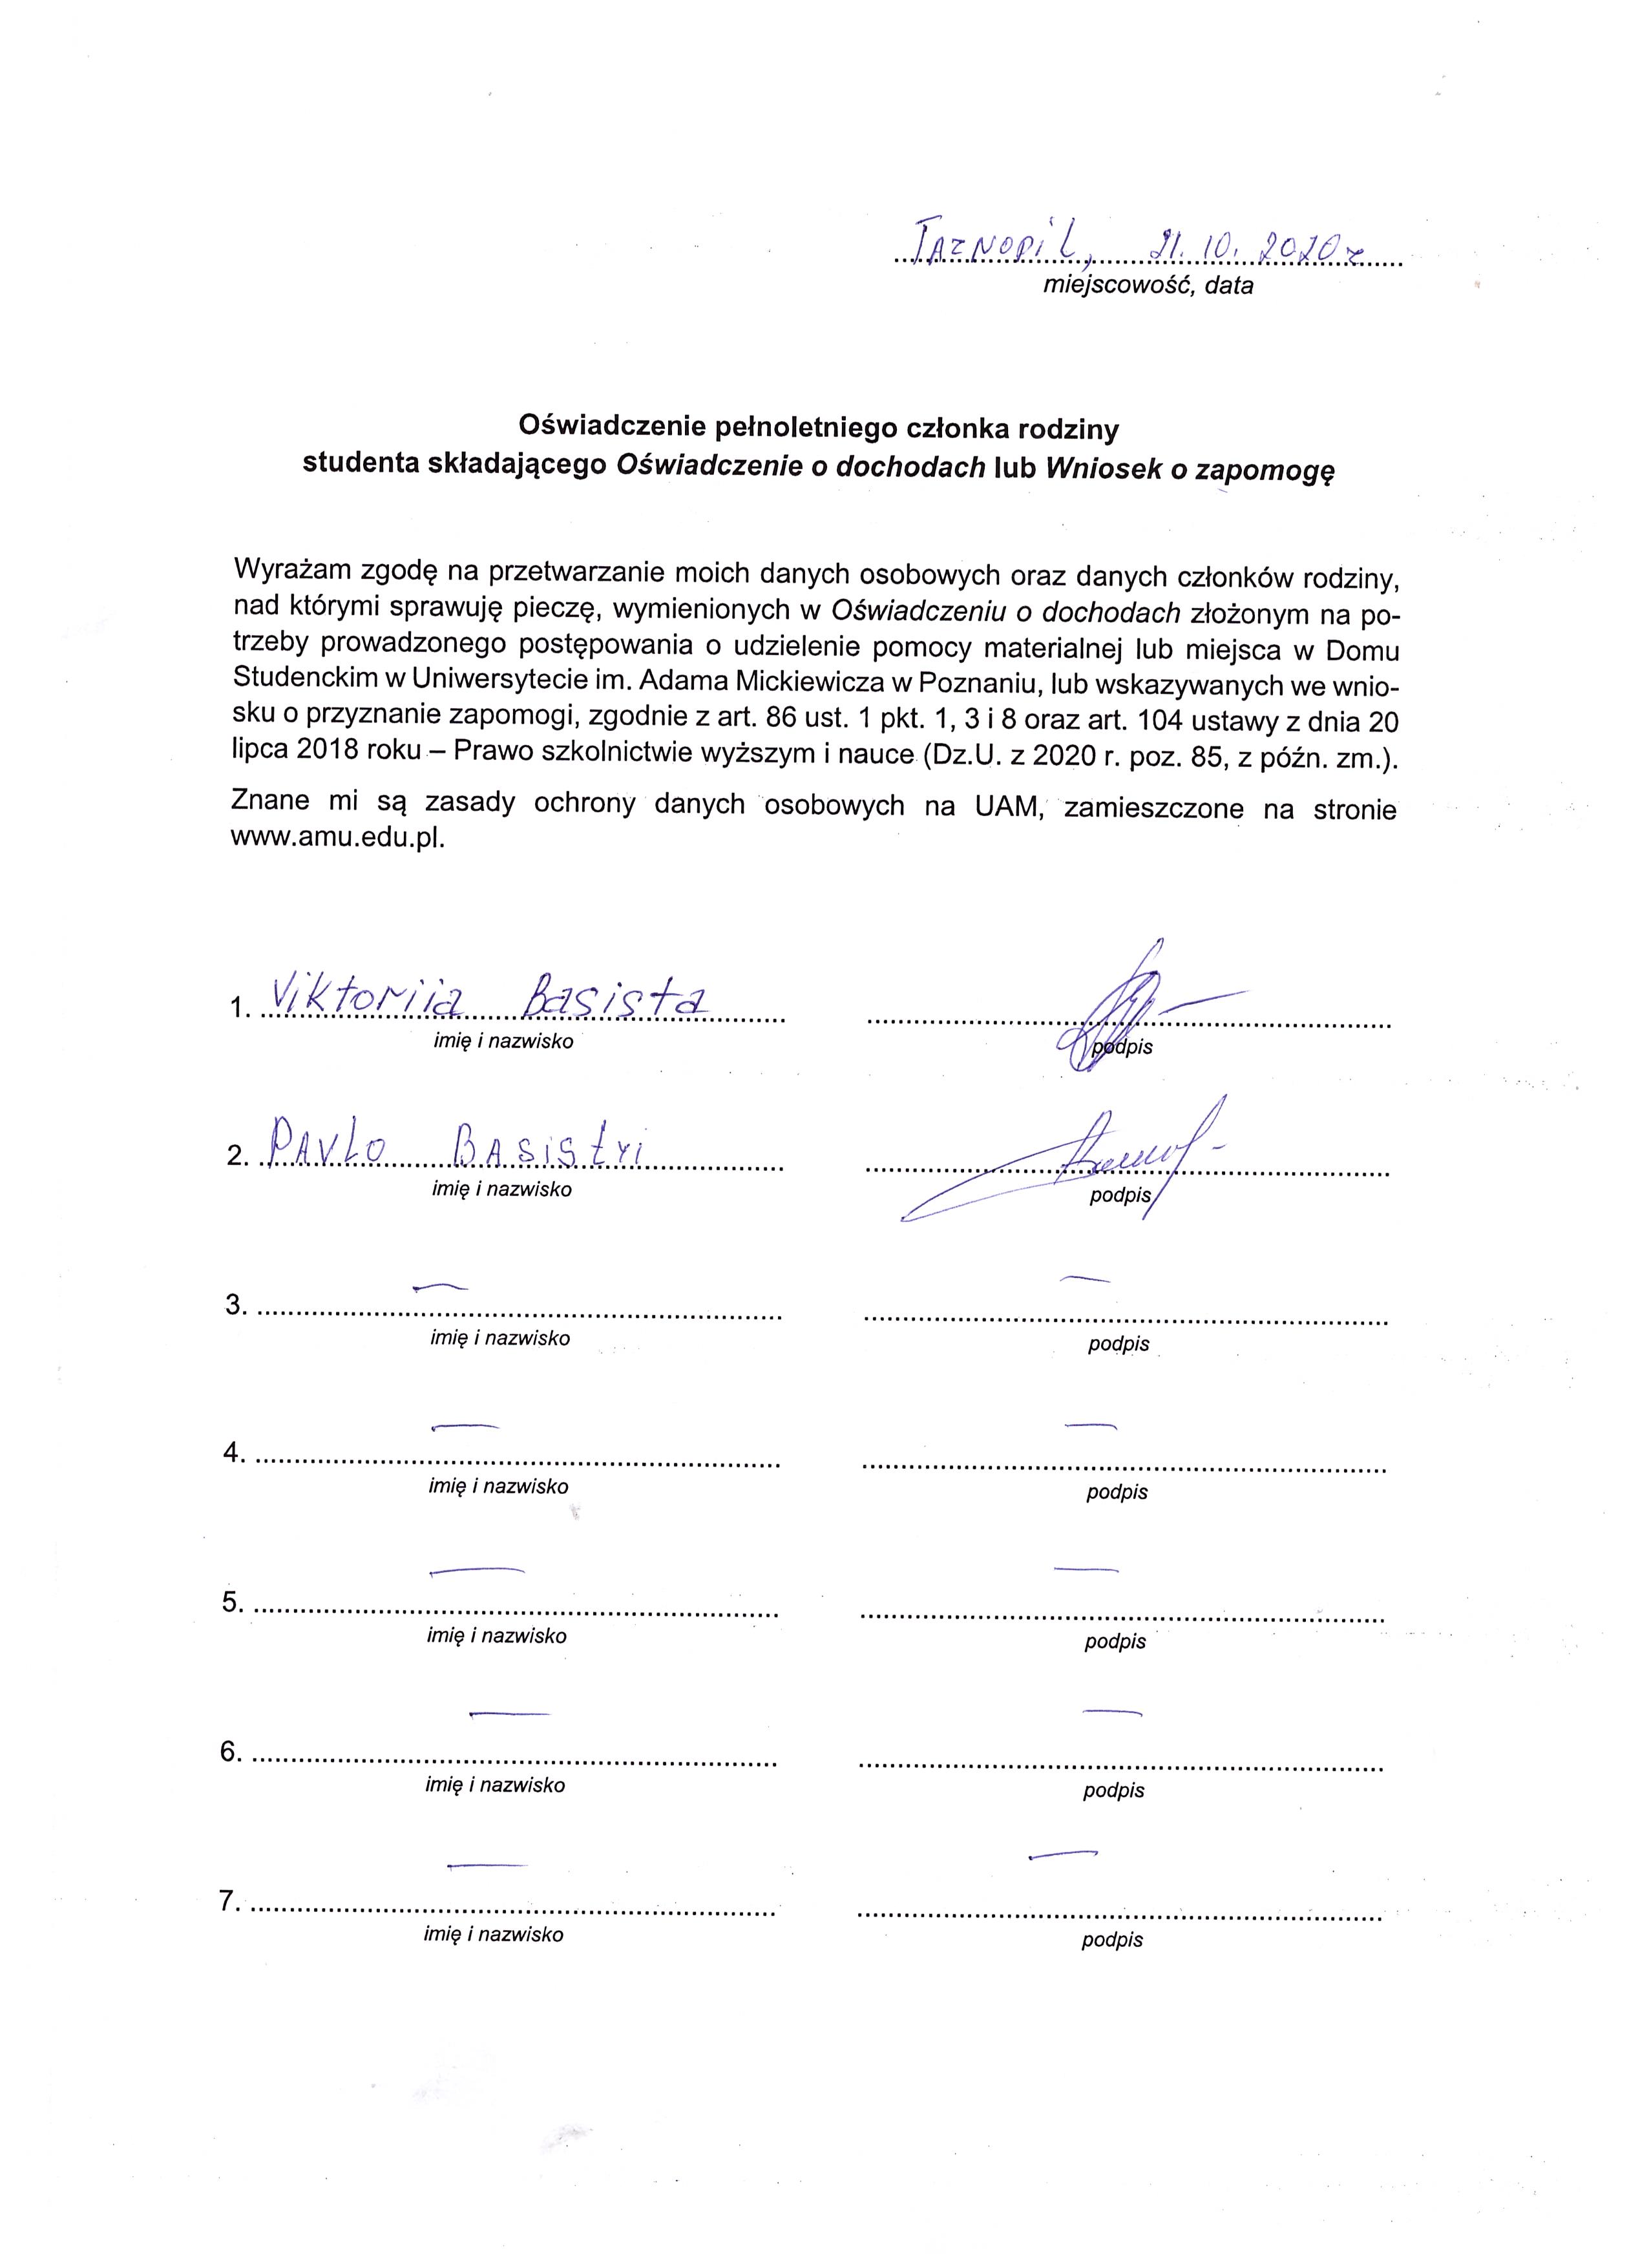 Tarnopil, 21.10.2020 r
miejscowość, data
Oświadczenie pełnoletniego członka rodziny
studenta składającego Oświadczenie o dochodach lub Wniosek o zapomogę
Wyrażam zgodę na przetwarzanie moich danych osobowych oraz danych członków rodziny,
nad którymi sprawuję pieczę, wymienionych w Oświadczeniu o dochodach złożonym na po-
trzeby prowadzonego postępowania o udzielenie pomocy materialnej lub miejsca w Domu
Studenckim w Uniwersytecie im. Adama Mickiewicza w Poznaniu, lub wskazywanych we wnio-
sku o przyznanie zapomogi, zgodnie z art. 86 ust. 1 pkt. 1, 3 i 8 oraz art. 104 ustawy z dnia 20
lipca 2018 roku – Prawo szkolnictwie wyższym i nauce (Dz.U. z 2020 r. poz. 85, z późn. zm.).
Znane mi są zasady ochrony danych osobowych na UAM, zamieszczone na stronie
www.amu.edu.pl.
1. Viktoriia Basista
imię i nazwisko podpis
2. Pavlo Basistyi
imię i nazwisko podpis
3. — —
imię i nazwisko podpis
4. — —
imię i nazwisko podpis
5. — —
imię i nazwisko podpis
6. — —
imię i nazwisko podpis
7. — —
imię i nazwisko podpis